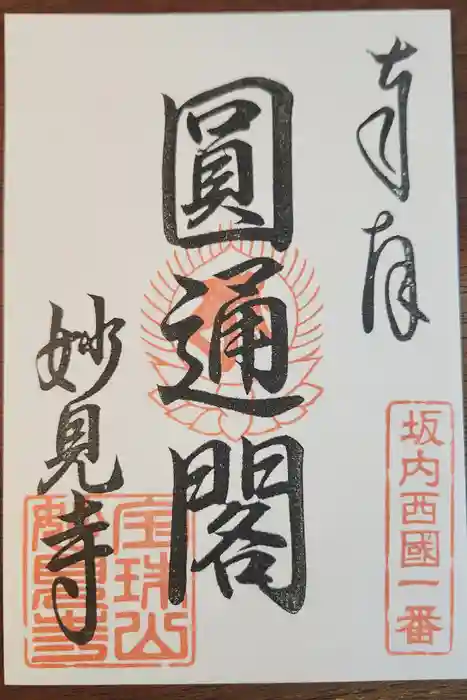 奉拝
坂内西國一番
圓通閣
妙見寺
宝珠山
妙見寺